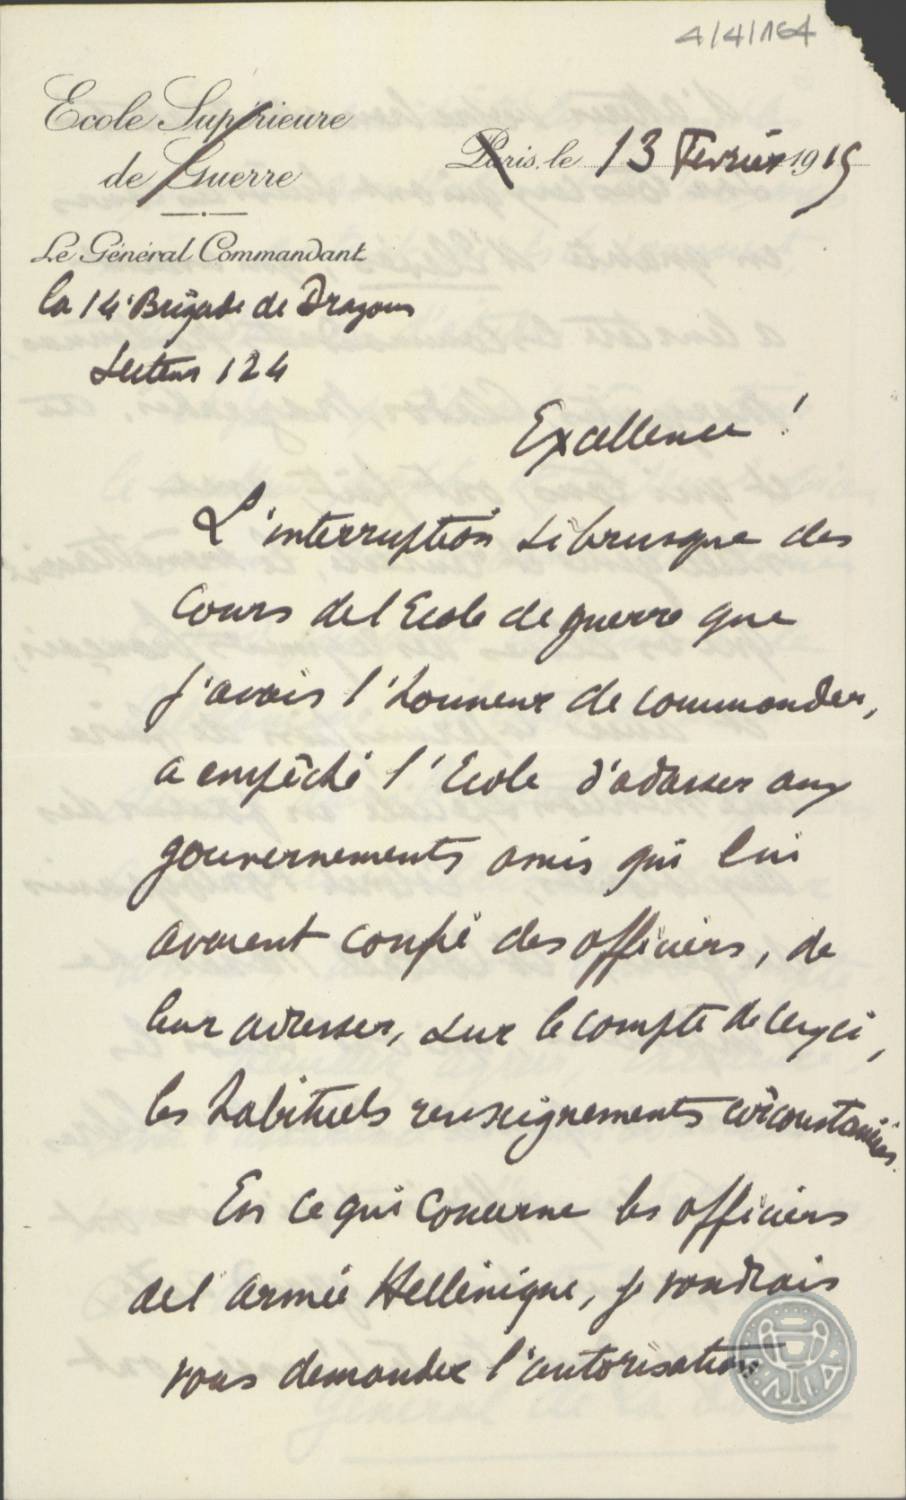 4/4/164
Ecole Supérieure
de Guerre
Paris, le 13 Février 1915
Le Général Commandant
la 14e Brigade de Dragons
Secteur 124
Excellence !
L'interruption si brusque des
cours de l'Ecole de guerre que
j'avais l'honneur de commander,
a empêché l'Ecole d'adresser aux
gouvernements amis qui lui
avaient confié des officiers, de
leur adresser, sur le compte de ceux ci,
les habituels renseignements circonstanciés.
En ce qui concerne les officiers
de l'armée Hellénique, je voudrais
vous demander l'autorisation